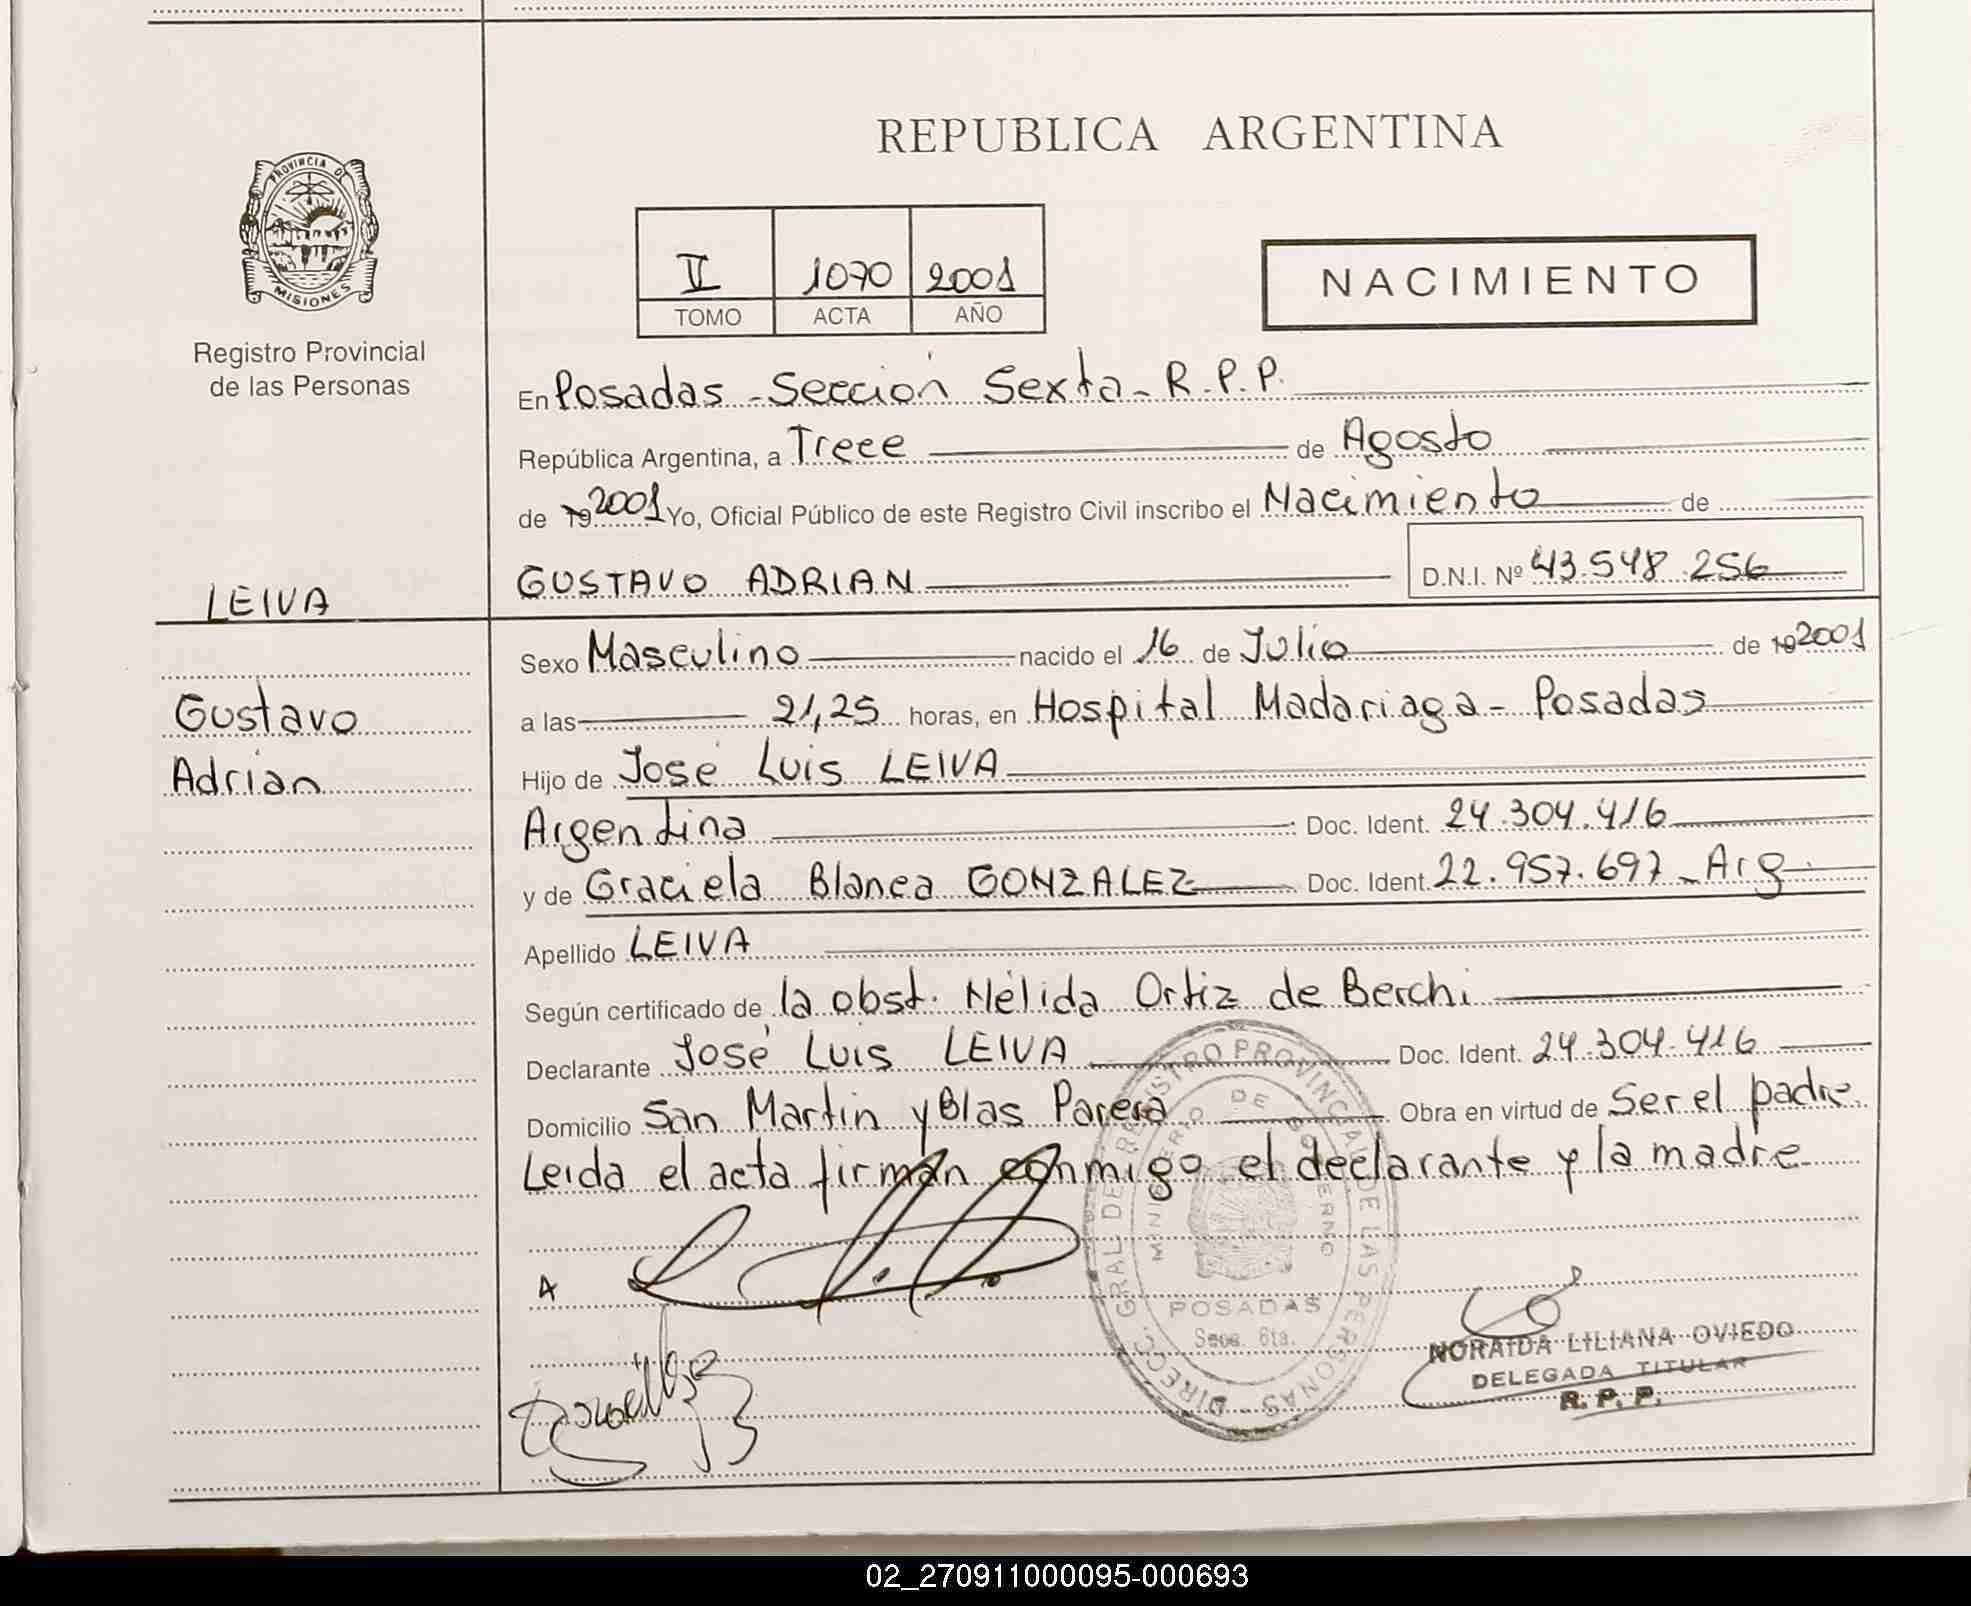 REPUBLICA ARGENTINA
PROVINCIA DE
MISIONES
Registro Provincial
de las Personas
V 1070 2001
TOMO ACTA AÑO
NACIMIENTO
En Posadas - Sección Sexta - R.P.P.
República Argentina, a Trece de Agosto
de 19 2001 Yo, Oficial Público de este Registro Civil inscribo el Nacimiento de
GUSTAVO ADRIAN D.N.I. Nº 43.548.256
LEIVA
Gustavo
Adrian
Sexo Masculino nacido el 16 de Julio de 19 2001
a las 21,25 horas, en Hospital Madariaga - Posadas
Hijo de José Luis LEIVA
Argentina Doc. Ident. 24.304.416
y de Graciela Blanca GONZALEZ Doc. Ident. 22.957.697 - Arg.
Apellido LEIVA
Según certificado de la obst. Nélida Ortiz de Berchi
Declarante José Luis LEIVA Doc. Ident. 24.304.416
Domicilio San Martin y Blas Parera Obra en virtud de Ser el padre.
Leida el acta firman conmigo el declarante y la madre
DIRECC. GRAL DE REGISTRO PROVINCIAL DE LAS PERSONAS
MINISTERIO DE GOBIERNO
POSADAS
Secc. 6ta.
NORAIDA LILIANA OVIEDO
DELEGADA TITULAR
R.P.P.
02_270911000095-000693